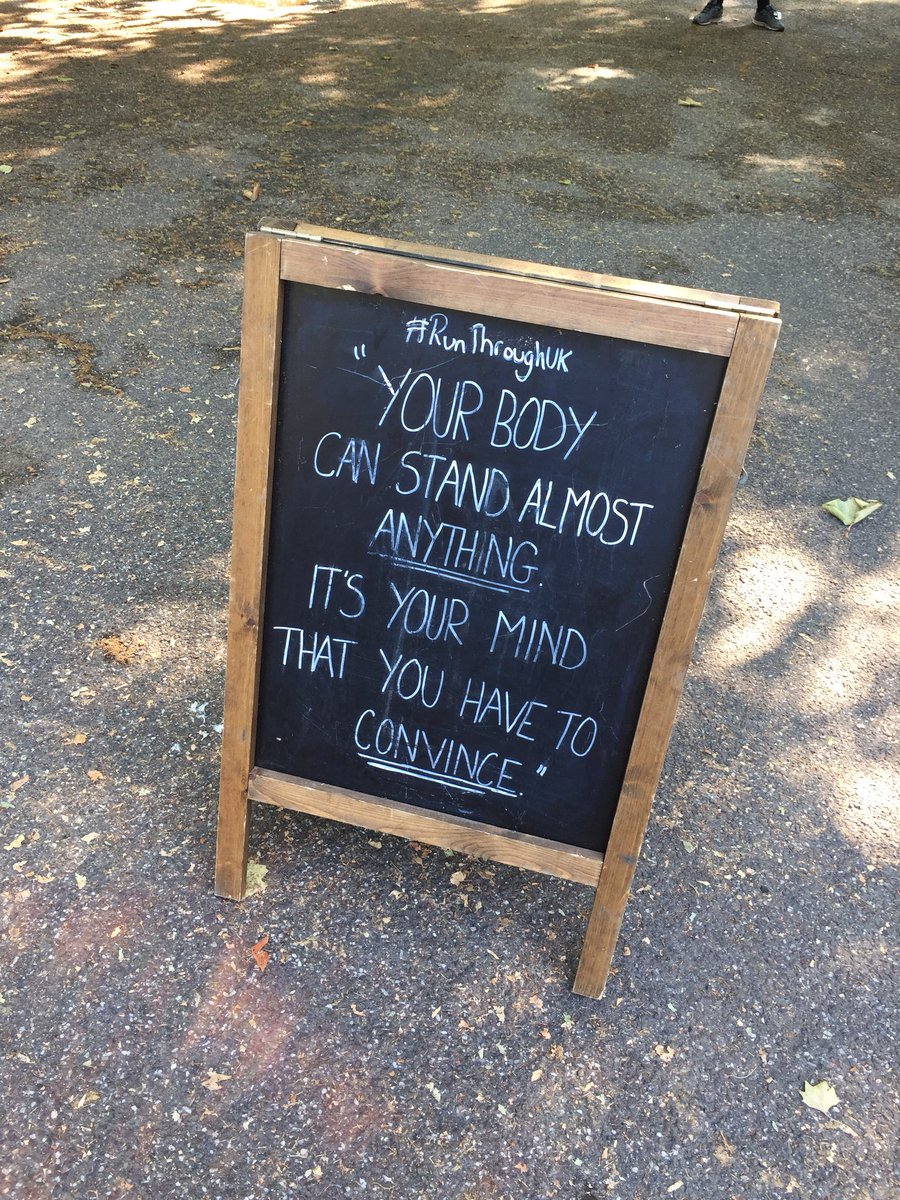 #RunThroughUK
"YOUR BODY
CAN STAND ALMOST
ANYTHING.
IT'S YOUR MIND
THAT YOU HAVE TO
CONVINCE."